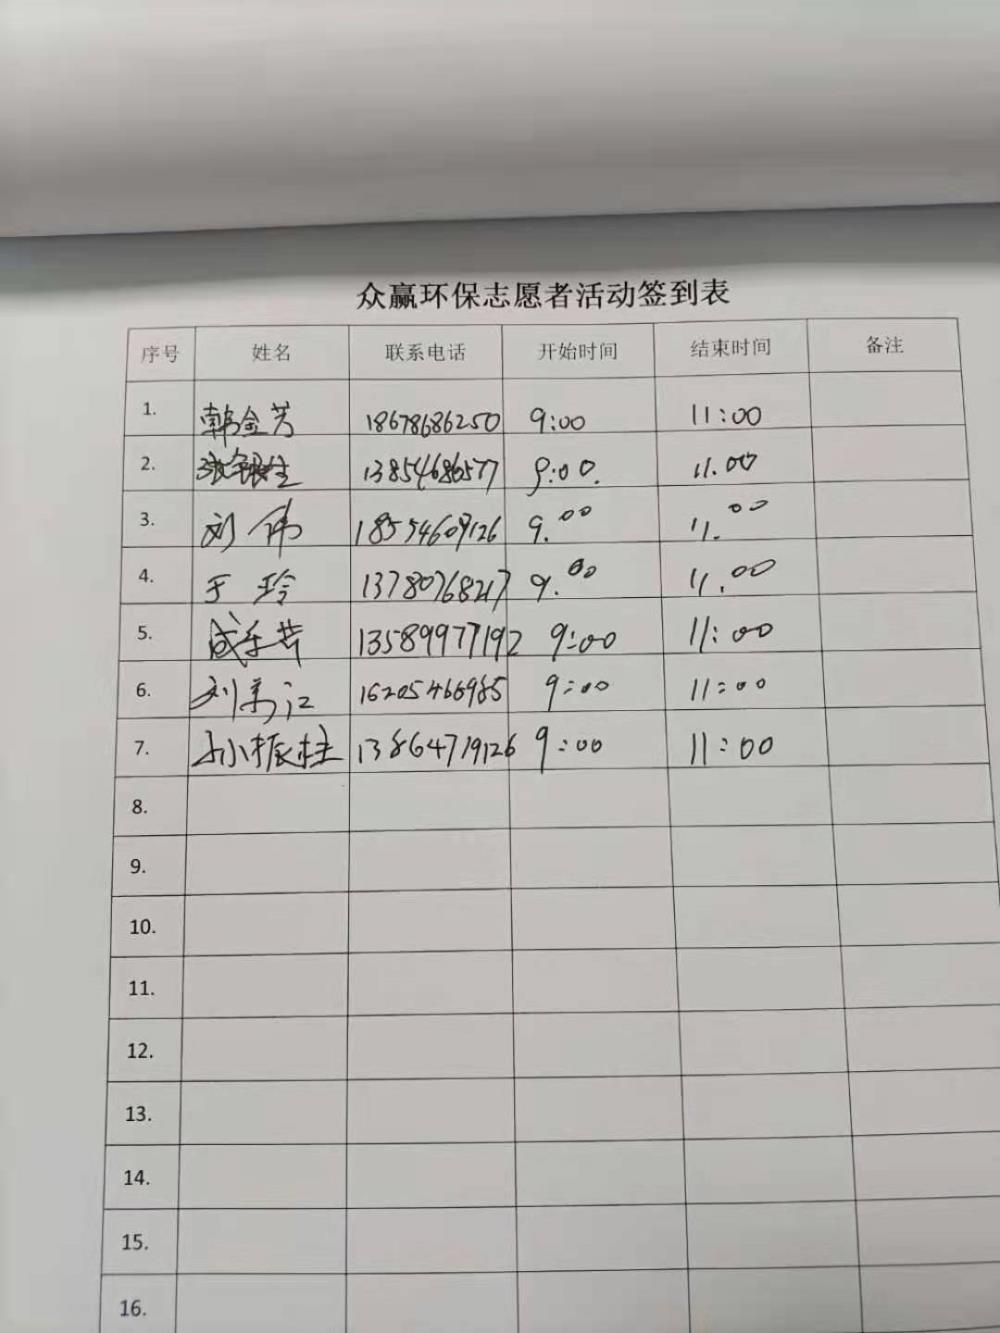 众赢环保志愿者活动签到表
序号 姓名 联系电话 开始时间 结束时间 备注
1. 韩金芳 18678686250 9:00 11:00
2. 13854686577 9:00. 11.00
3. 刘伟 18554609126 9.00 11.00
4. 于玲 13780768217 9.00 11.00
5. 13589977192 9:00 11:00
6. 刘寿江 16205466985 9:00 11:00
7. 孙振柱 13864719126 9:00 11:00
8.
9.
10.
11.
12.
13.
14.
15.
16.